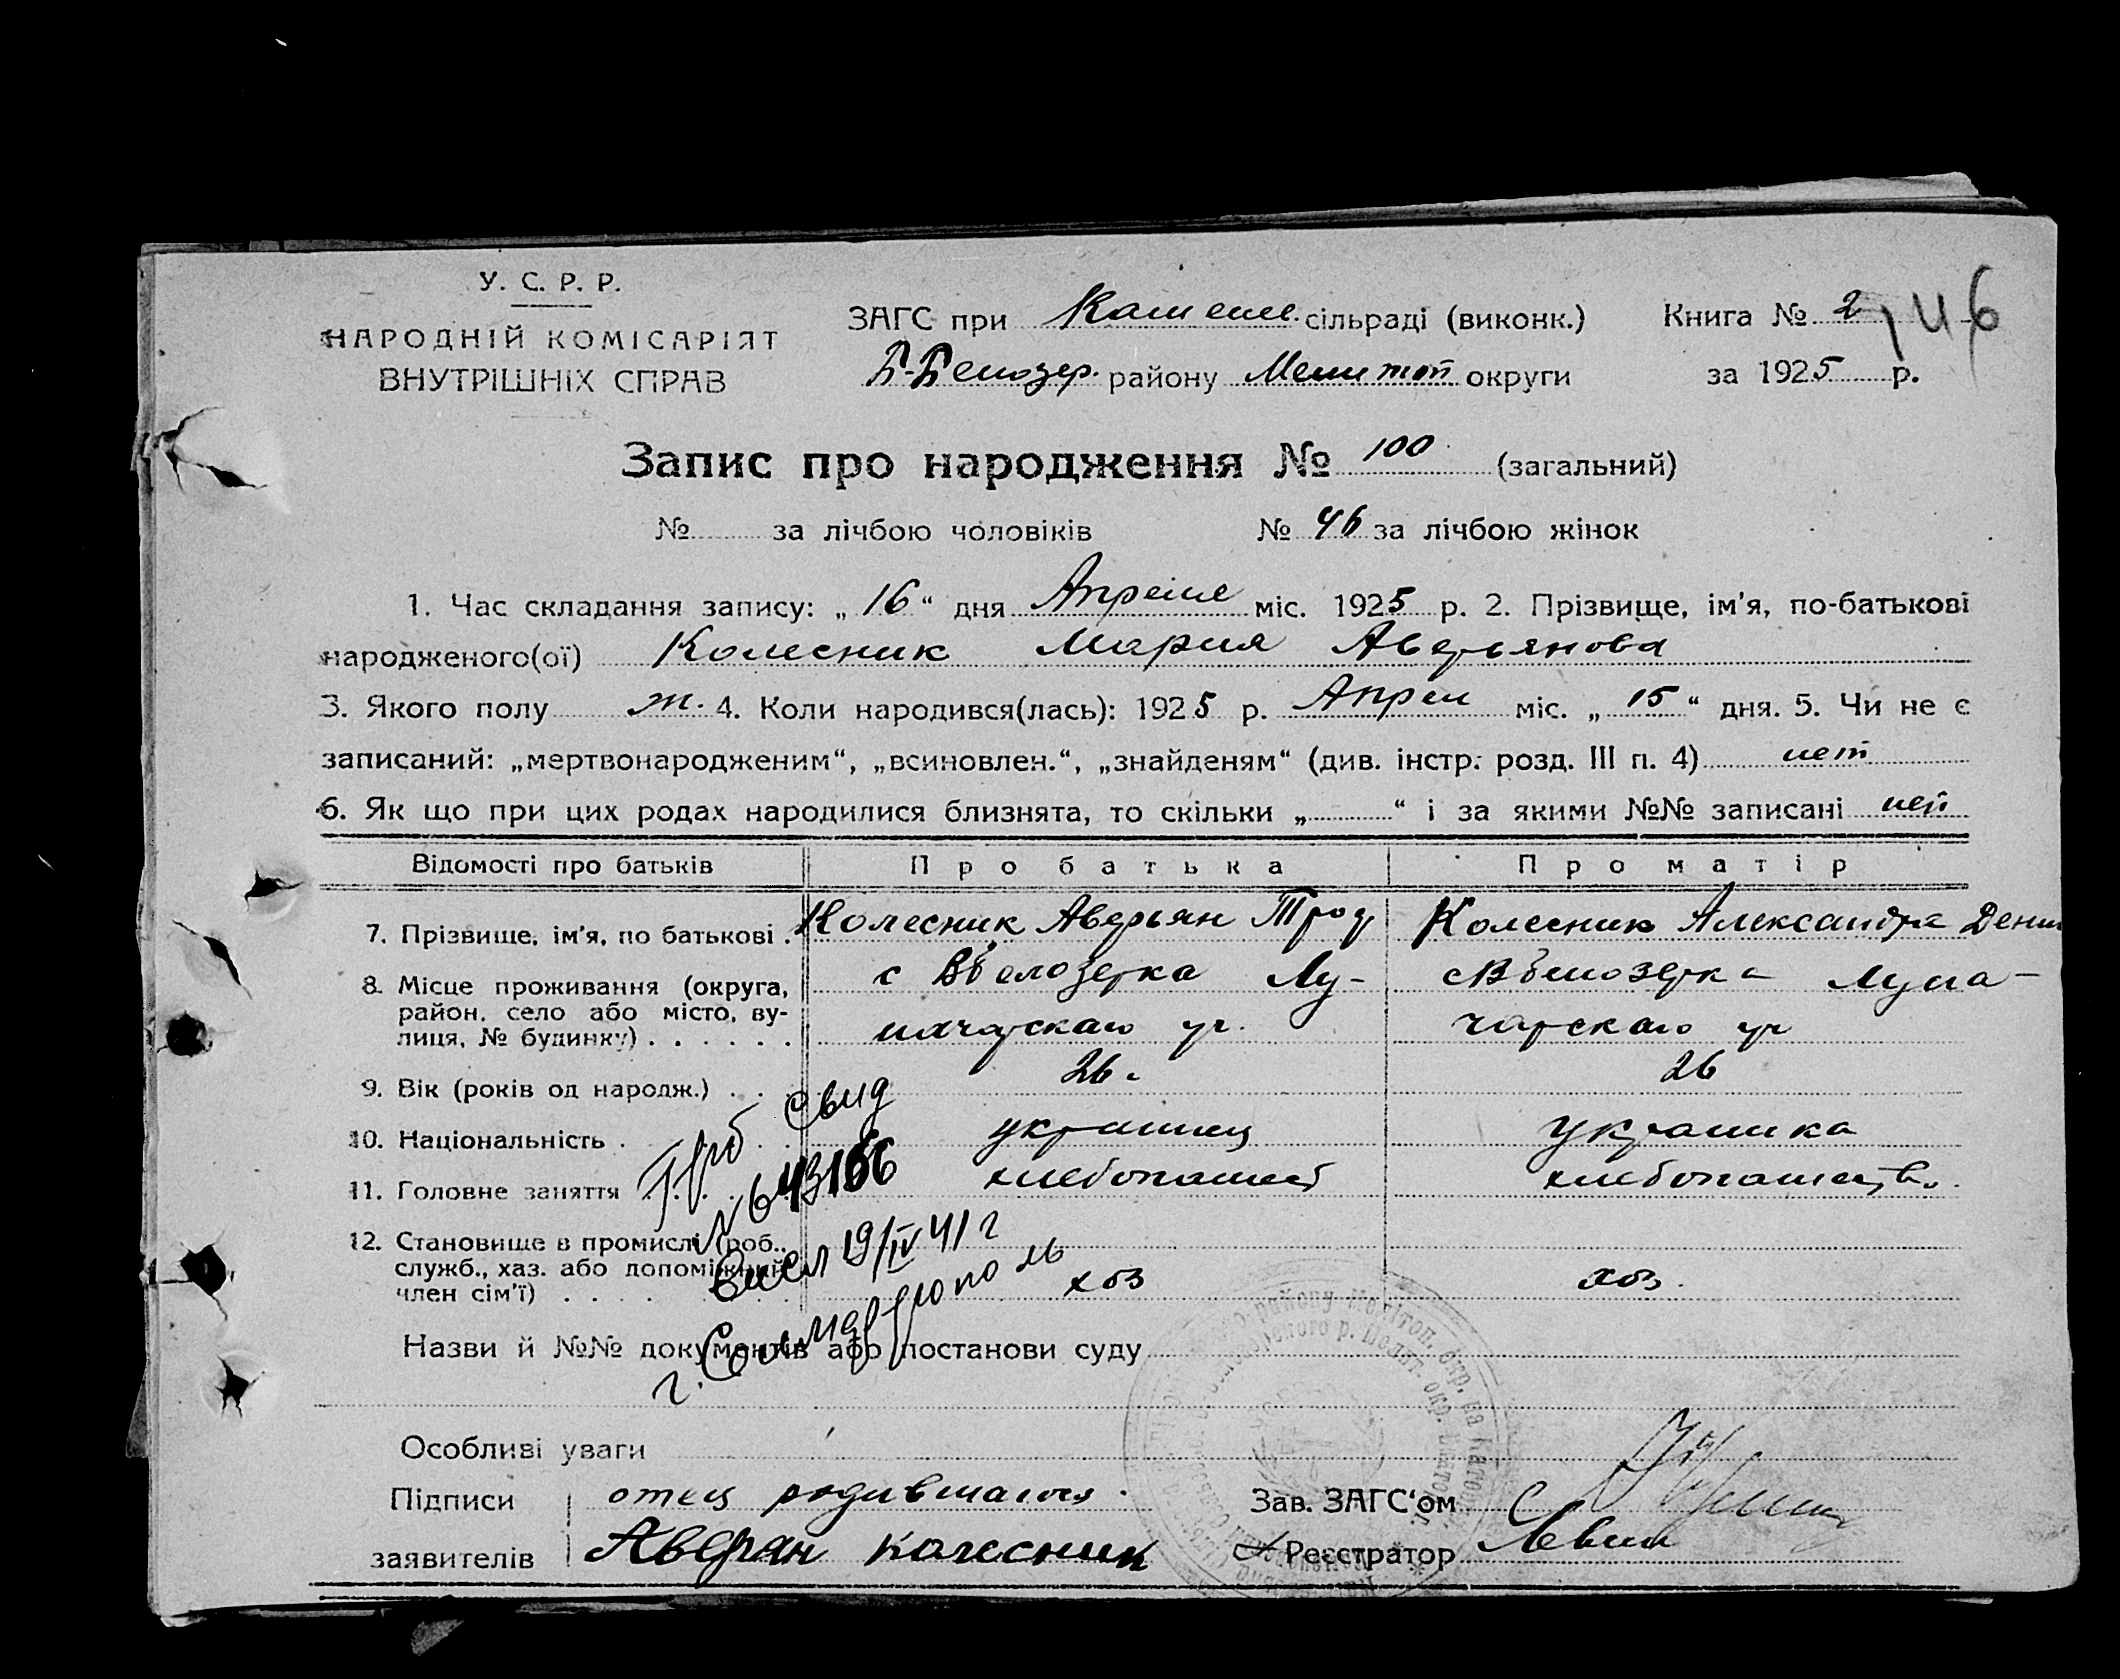 У. С. Р. Р.
НАРОДНІЙ КОМІСАРІЯТ
ВНУТРІШНІХ СПРАВ
ЗАГС при сільраді (виконк.)
Б-Белозер. району Мелитоп округи
Книга № 2
146
за 1925 р.
Запис про народження № 100 (загальний)
№ за лічбою чоловіків № 46 за лічбою жінок
1. Час складання запису: „ 16 “ дня Апреля міс. 1925 р. 2. Прізвище, ім'я, по-батькові
народженого(ої) Колесник Мария Аверьянова
3. Якого полу ж. 4. Коли народився(лась): 1925 р. Апрел міс. „ 15 “ дня. 5. Чи не є
записаний: „мертвонародженим“, „всиновлен.“, „знайденям“ (див. інстр. розд. III п. 4) нет
6. Як що при цих родах народилися близнята, то скільки „ “ і за якими №№ записані нет
Відомості про батьків Про батька Про матір
7. Прізвище, ім'я, по батькові . Колесник Аверьян Троф Колесник Александра Дени
8. Місце проживання (округа, с ВБелозерка Лу- с ВБелозерка Луна-
район, село або місто, ву-
лиця, № будинку) . . . . . . начарскаго ул. чарскаго ул
9. Вік (років од народж.) . . 26. 26
10. Національність . украинец украинка
11. Головне заняття хлебопашест хлебопашеств.
12. Становище в промислі (роб.,
служб., хаз. або допоміжний
член сім'ї) . . . . хоз хоз.
свид
№ 643166
19/IV 41 г
г. Симферополь
Назви й №№ документів або постанови суду
Особливі уваги
Підписи отец родившагося.
заявителів Аверян колесник
Зав. ЗАГС‘ом
Реєстратор Левин